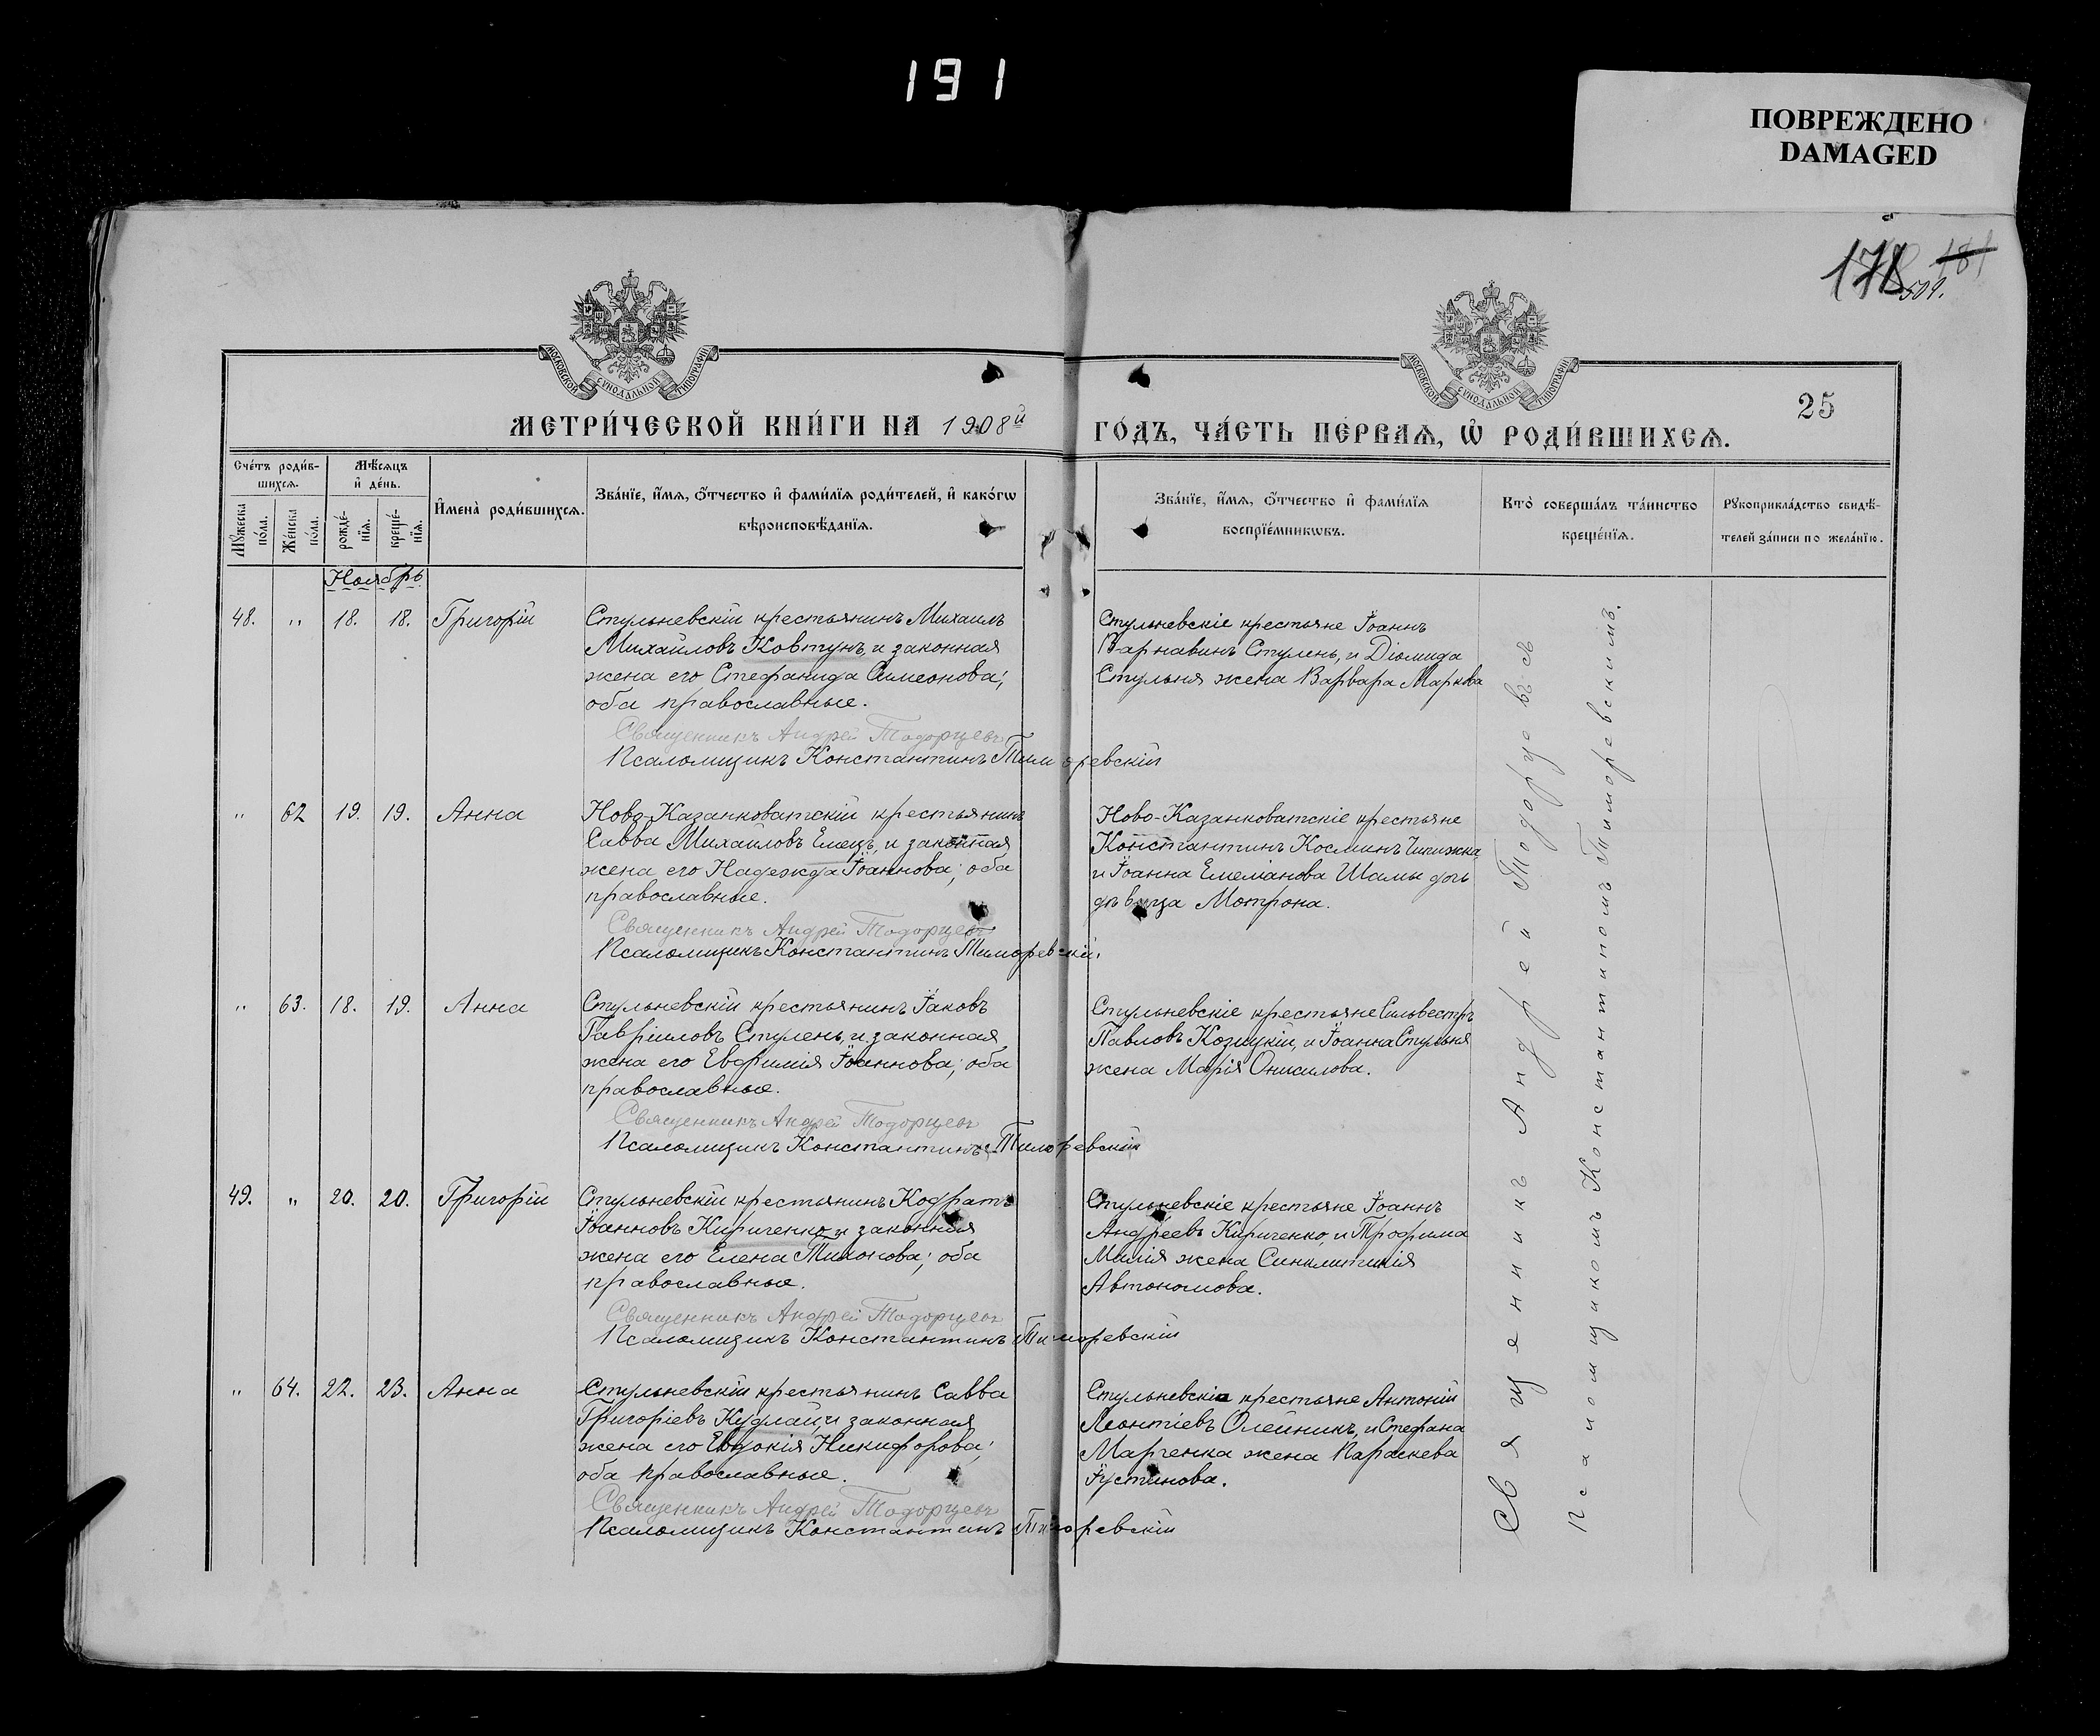 191
ПОВРЕЖДЕНО
DAMAGED
178 181
509.
МОСКОВСКОЙ СѴНОДАЛЬНОЙ ТИПОГРАФІИ
МОСКОВСКОЙ СѴНОДАЛЬНОЙ ТИПОГРАФІИ
25
МЕТРИ́ЧЕСКОЙ КНИ́ГИ НА 1908й
ГО́ДЪ, ЧА́СТЬ ПЕ́РВАѦ, Ѡ҆ РОДИ́ВШИХСѦ.
Сче́тъ роди́в-
шихсѧ.
Мꙋ́жеска
по́ла.
Же́нска
по́ла.
Мѣ́сѧцъ
и҆ де́нь.
рожде́-
нїѧ.
креще́-
нїѧ.
И҆мена̀ роди́вшихсѧ.
Зва́нїе, и҆́мѧ, ѻ҆́тчество и҆ фами́лїѧ роди́телей, и҆ како́гѡ
вѣроисповѣ́данїѧ.
Зва́нїе, и҆́мѧ, ѻ҆́тчество и҆ фами́лїѧ
воспрїе́мникѡвъ.
Кто̀ соверша́лъ та́инство
креще́нїѧ.
Рꙋкоприкла́дство свидѣ́-
телей за́писи по жела́нїю.
Ноябрь
48. " 18. 18. Григорій
Стульневскій крестьянинъ Михаилъ
Михайловъ Ковтунъ, и законная
жена его Стефанида Симеонова;
оба православные.
Священникъ Андрей Тодорцевъ
Псаломщикъ Константинъ Тиморевскій
Стульневскіе крестьяне Іоаннъ
Варнавинъ Стулень, и Діомида
Стульня жена Варвара Маркова
" 62 19. 19. Анна
Ново-Казанковатскій крестьянинъ
Савва Михайловъ Емецъ, и законная
жена его Надежда Іоаннова; оба
православные.
Священникъ Андрей Тодорцевъ
Псаломщикъ Константинъ Тиморевскій.
Ново-Казанковатскіе крестьяне
Константинъ Косминъ Чипижка,
и Іоанна Емеліанова Шамы дочь
дѣвица Мотрона.
" 63. 18. 19. Анна
Стульневскій крестьянинъ Іаковъ
Гавріиловъ Стулень, и законная
жена его Евфимія Іоаннова; оба
православные.
Священникъ Андрей Тодорцевъ
Псаломщикъ Константинъ Тиморевскій
Стульневскіе крестьяне Силовестръ
Павловъ Козицкій, и Іоанна Стульня
жена Марія Онисимова.
49. " 20. 20. Григорій
Стульневскій крестьянинъ Кодратъ
Іоанновъ Кириченко, и законная
жена его Елена Тихонова; оба
православные.
Священникъ Андрей Тодорцевъ
Псаломщикъ Константинъ Тиморевскій
Стульневскіе крестьяне Іоаннъ
Андреевъ Кириченко, и Трофима
Малія жена Синклитикія
Автономова.
" 64. 22. 23. Анна
Стульневскій крестьянинъ Савва
Григоріевъ Кудлай, и законная
жена его Евдокія Никифорова;
оба православные.
Священникъ Андрей Тодорцевъ
Псаломщикъ Константинъ Тиморевскій
Стульневскіе крестьяне Антоній
Леонтіевъ Олейникъ, и Стефана
Марченка жена Параскева
Іустинова.
Священникъ Андрей Тодорцевъ съ
Псаломщикомъ Константиномъ Тиморевскимъ.